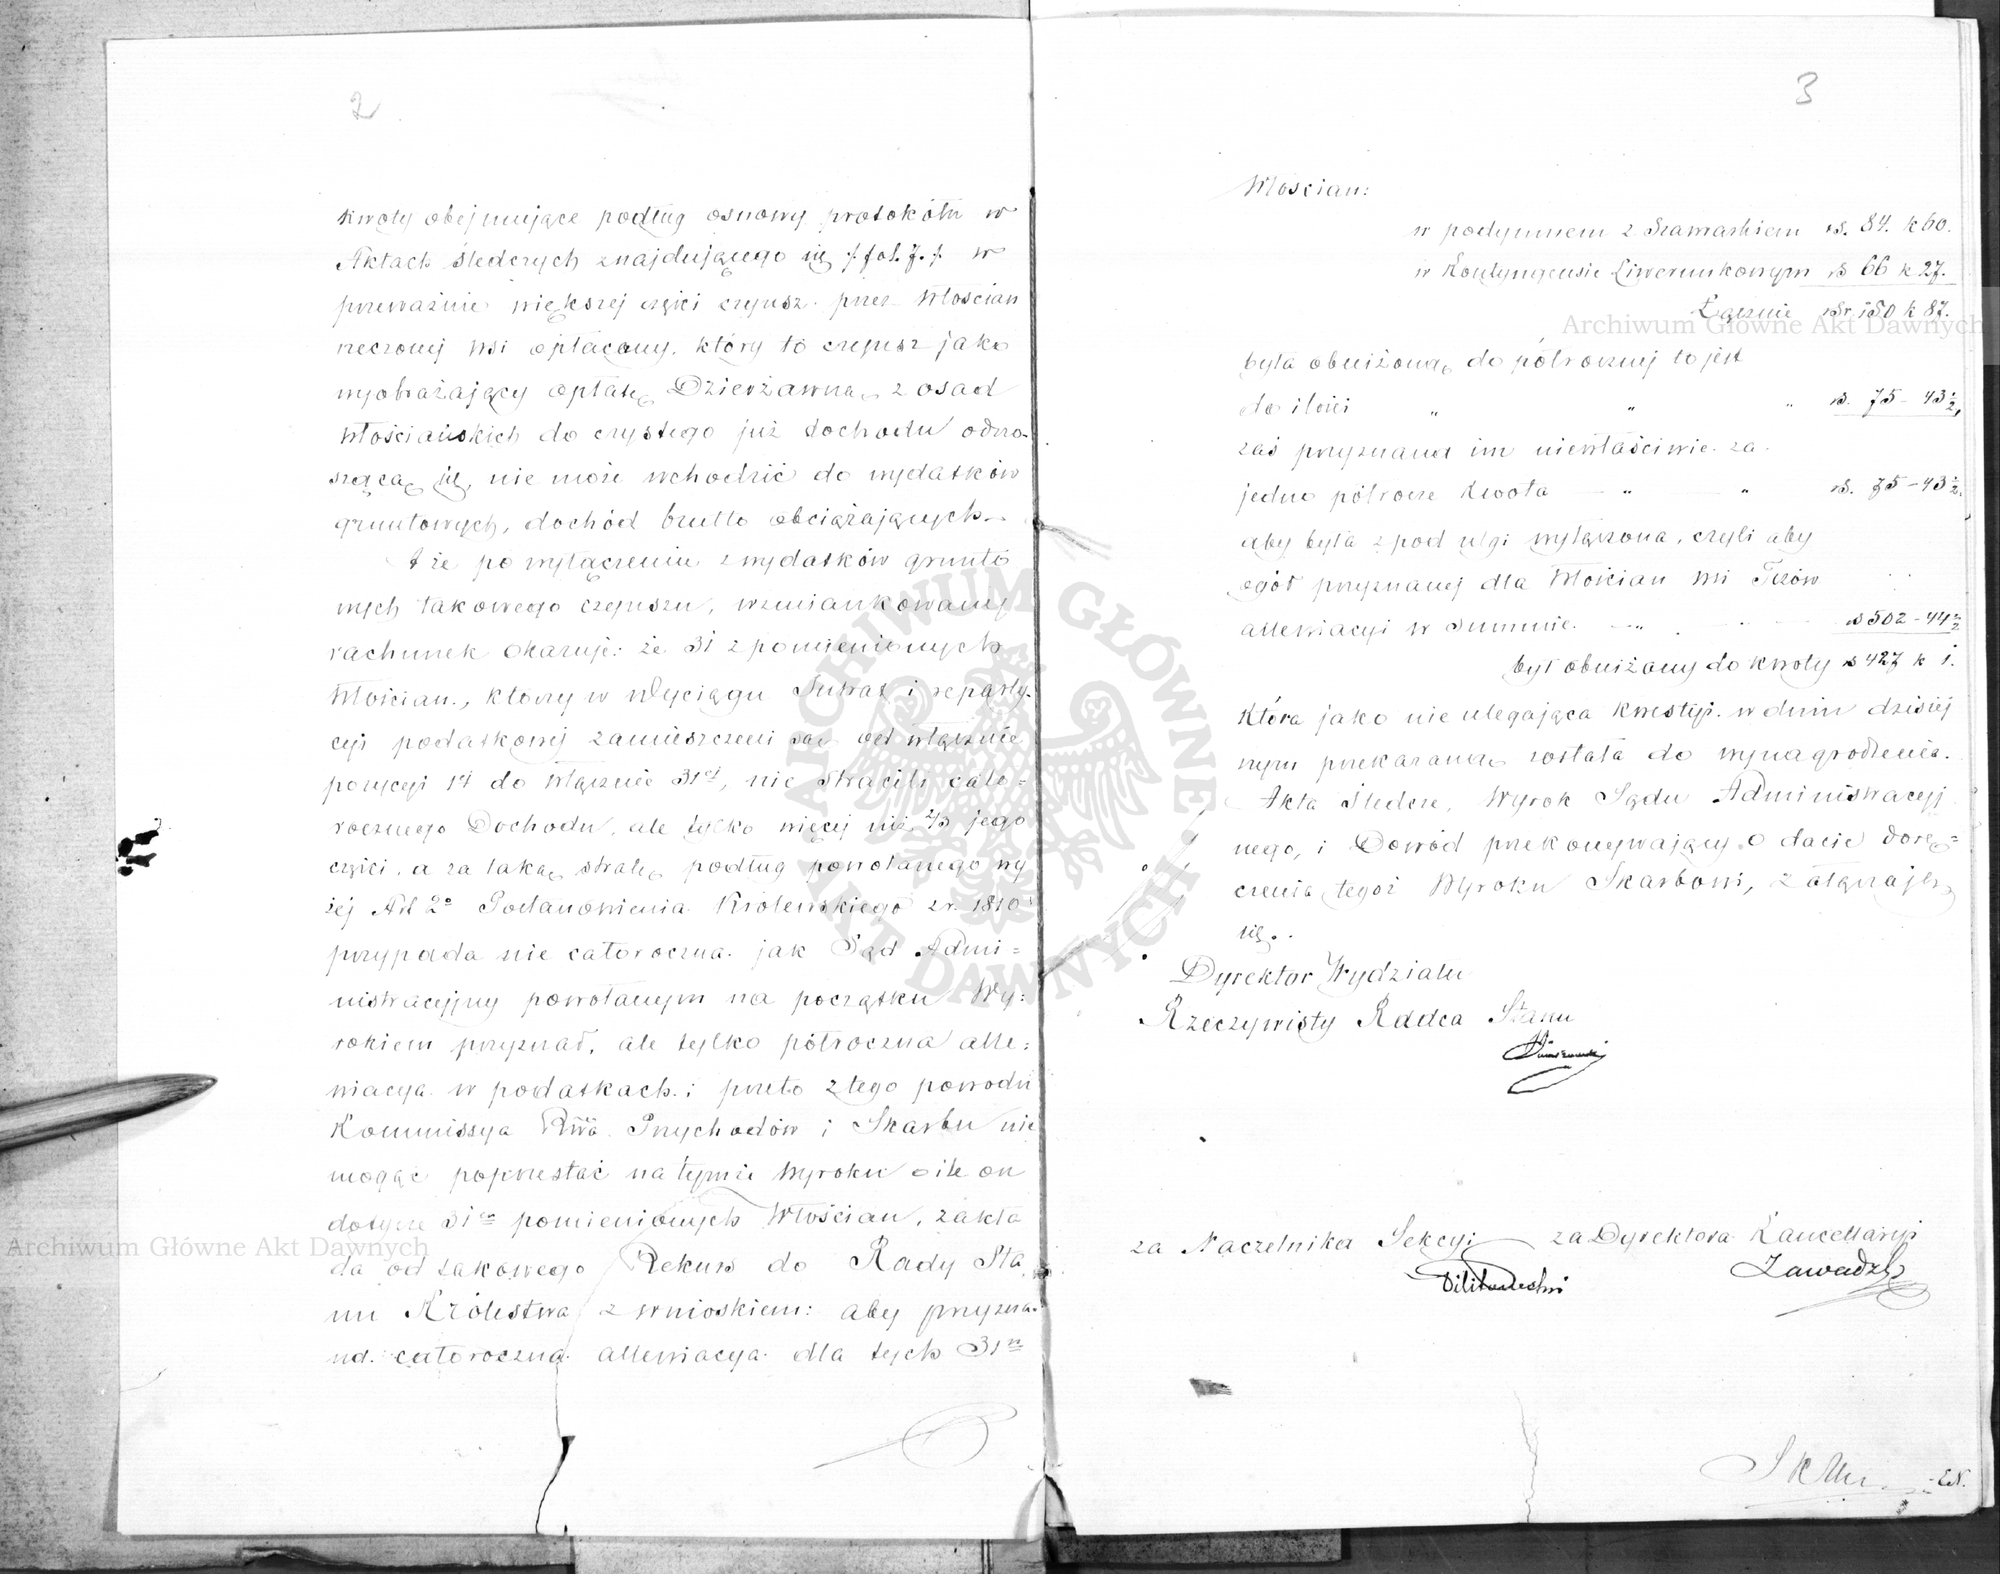 2
kwoty obejmujące podług osnowy protokółu w
Aktach śledczych znajdującego się /. fol. 7. /. w
przeważnie większej części czynsz przez Włościan
rzeczonej wsi opłacany, który to czynsz jako
wyobrażający opłatę Dzierżawną z osad
Włościańskich do czystego już dochodu odno-
szącą się, nie może wchodzić do wydatków
gruntowych, dochód brutto obciążających.
A że po wyłączeniu z wydatków grunto
wych takowego czynszu, wzmiankowany
rachunek okazuje: że 31 z pomienionych
Włościan, którzy w Wyciągu Strat i reparty-
cyi podatkowej zamieszczeni są od włącznie
pozycyi 1ej do włącznie 31ej, nie stracili cało=
rocznego Dochodu, ale tylko więcej niż 2/3 jego
części, a za taką stratę podług powołanego wy
żej Art 2o Postanowienia Królewskiego z r. 1810
przypada nie całoroczna jak Sąd Admi=
nistracyjny powołanym na początku Wy=
rokiem przyznał, ale tylko półroczna alle=
wiacya w podatkach; przeto z tego powodu
Kommissya Rwa Przychodów i Skarbu nie
mogąc poprzestać na tymże Wyroku o ile on
dotycze 31en pomienionych Włościan, zakła
da od takowego Rekurs do Rady Sta
nu Królestwa z wnioskiem: aby przyzna-
na całoroczna allewiacya dla tych 31en
3
Włościan:
w podymnem z Szarwarkiem rs. 84. k 60.
w Kontyngensie Liwerunkowym rs 66 k 27.
Łącznie rsr. 150 k 87.
była obniżoną do półrocznej to jest
do ilości " " " rs. 75 – 43 1/2,
zaś przyznana im niewłaściwie za
jedno półrocze kwota — " — " rs. 75 – 43 1/2.
aby była z pod ulgi wyłączona, czyli aby
ogół przyznanej dla Włościan wsi
allewiacyi w summie — " — rs 502 – 44 1/2
był obniżany do kwoty rs 427 k 1.
która jako nie ulegająca kwestyi w dniu dzisiej
szym przekazaną została do wynagrodzenia.
Akta śledcze, Wyrok Sądu Administracyj
nego, i Dowód przekonywający o dacie dorę=
czenia tegoż Wyroku Skarbowi, załączają
się.
Dyrektor Wydziału
Rzeczywisty Radca Stanu
za Naczelnika Sekcyi za Dyrektora Kancellaryi
Zawadzki
Archiwum Główne Akt Dawnych
Archiwum Główne Akt Dawnych
ARCHIWUM GŁÓWNE AKT DAWNYCH